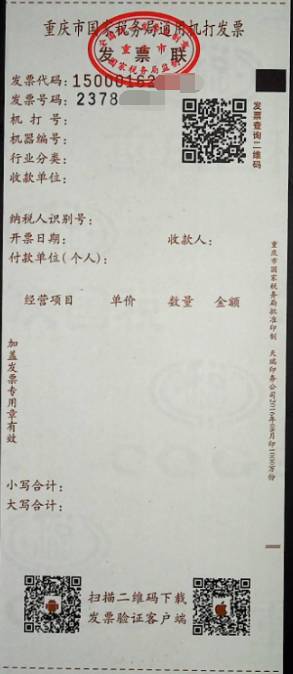 重庆市国家税务局通用机打发票
重庆市
发票联
国家税务局监制
发票代码：15000162
发票号码：2378
机打号：
机器编号：
行业分类：
收款单位：
发票查询二维码
纳税人识别号：
开票日期：
收款人：
付款单位（个人）：
经营项目 单价 数量 金额
加盖发票专用章有效
重庆市国家税务局批准印制 天瑞印务公司2016年08月印1000万份
小写合计：
大写合计：
扫描二维码下载
发票验证客户端